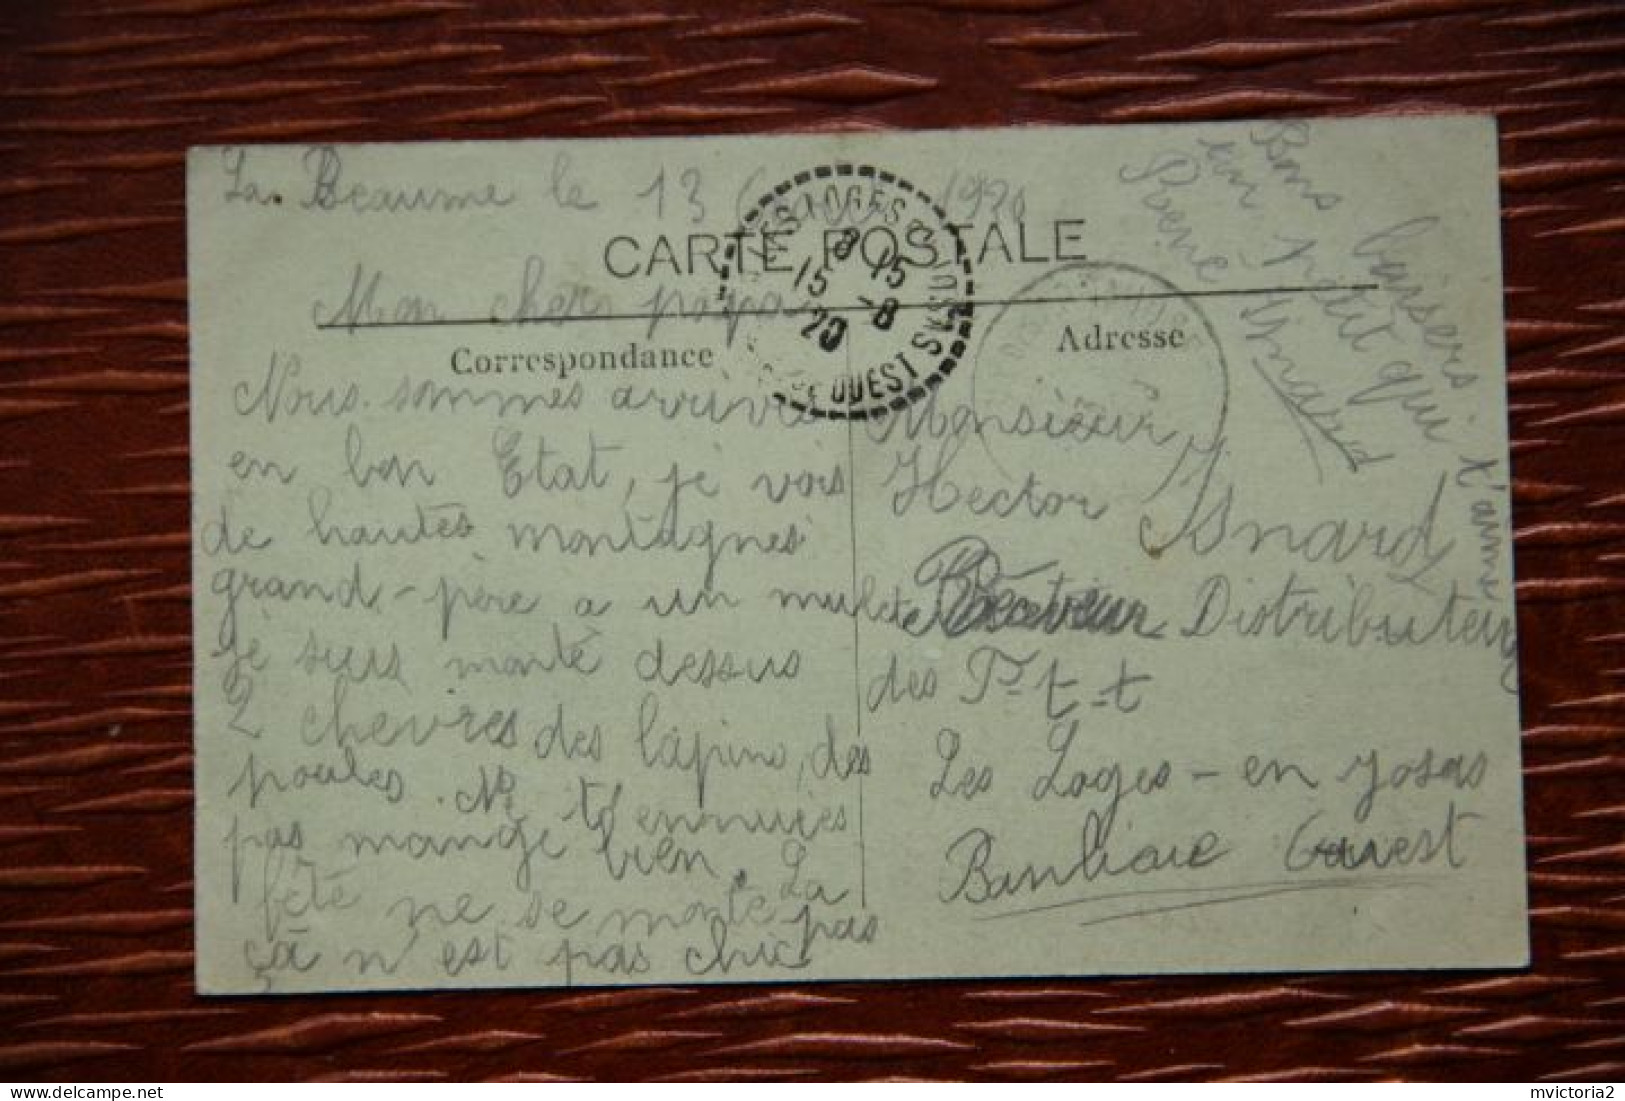 La Beaume le 13 Août 1920
CARTE POSTALE
Mon cher papa
Correspondance
Nous sommes arrivés
en bon Etat, je vois
de hautes montagnes
grand-père a un mulet
je suis monté dessus
2 chevres des lapins, des
poules. Ne t'ennuies
pas mange bien. La
fête ne se monte pas
çà n'est pas chic
LES LOGES EN JOSAS
8 15
15 -8
20
OUEST
Adresse
Monsieur
Hector Isnard
Distributeur
des P. t-t
Les Loges-en Josas
Banlieue Ouest
Bons baisers
un petit qui t'aime
René Isnard
mvictoria2